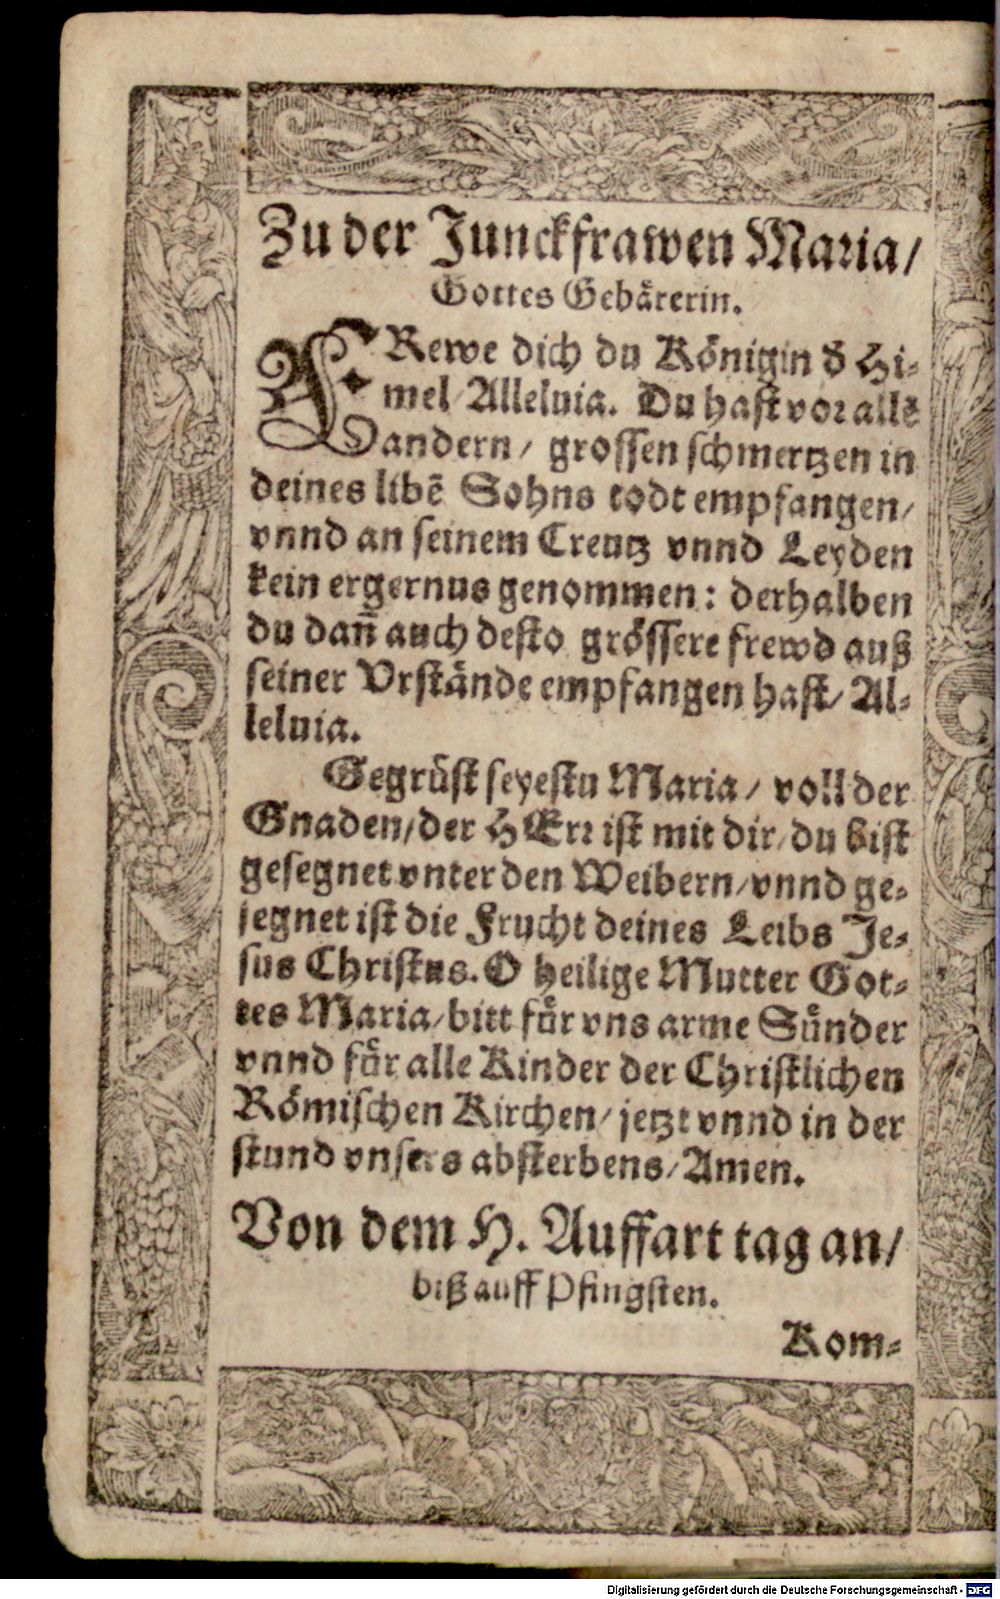 Zu der Junckfrawen Maria/
Gottes Gebärerin.
FRewe dich du Königin d̕ Hi-
mel Alleluia. Du hast vor allē
andern/ grossen schmertzen in
deines libē Sohns todt empfangen/
vnnd an seinem Creutz vnnd Leyden
kein ergernus genommen: derhalben
du dañ auch desto grössere frewd auß
seiner Vrstände empfangen hast/ Al-
leluia.
Gegrüst seyestu Maria/ voll der
Gnaden/ der HErr ist mit dir/ du bist
gesegnet vnter den Weibern/ vnnd ge-
segnet ist die Frucht deines Leibs Je-
sus Christus. O heilige Mutter Got-
tes Maria/ bitt für vns arme Sünder
vnnd für alle Kinder der Christlichen
Römischen Kirchen/ jetzt vnnd in der
stund vnsers absterbens/ Amen.
Von dem H. Auffart tag an/
biß auff Pfingsten.
Kom-
Digitalisierung gefördert durch die Deutsche Forschungsgemeinschaft - DFG